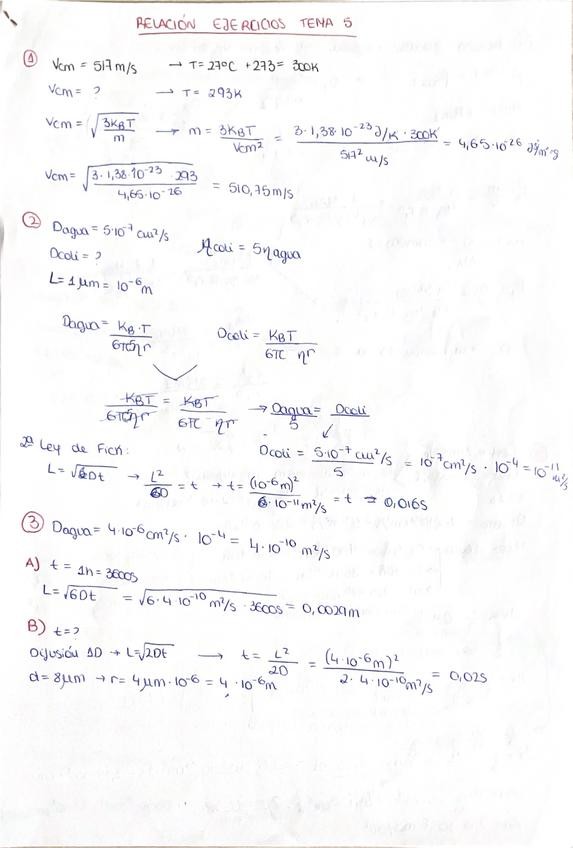 RELACIÓN EJERCICIOS TEMA 5
① Vcm = 517 m/s → T = 27ºC + 273 = 300K
Vcm = ? → T = 293K
Vcm = √(3KBT/m) → m = 3KBT/Vcm² = 3·1,38·10⁻²³ J/K · 300K / 517² m/s = 4,65·10⁻²⁶
Vcm = √(3·1,38·10⁻²³·293 / 4,65·10⁻²⁶) = 510,75 m/s
② Dagua = 5·10⁻⁷ cm²/s
ηcoli = 5ηagua
Dcoli = ?
L = 1 μm = 10⁻⁶ m
Dagua = KB·T / 6π5ηr Dcoli = KBT / 6π ηr
KBT / 6π5ηr = KBT / 6π ηr → Dagua / 5 = Dcoli
2ª Ley de Fick:
Dcoli = 5·10⁻⁷ cm²/s / 5 = 10⁻⁷ cm²/s · 10⁻⁴ = 10⁻¹¹ m²/s
L = √6Dt → L² / 6D = t → t = (10⁻⁶ m)² / 6·10⁻¹¹ m²/s = t = 0,016s
③ Dagua = 4·10⁻⁶ cm²/s · 10⁻⁴ = 4·10⁻¹⁰ m²/s
A) t = 1h = 3600s
L = √6Dt = √6·4·10⁻¹⁰ m²/s · 3600s = 0,0029m
B) t = ?
Difusión 1D → L = √2Dt → t = L² / 2D = (4·10⁻⁶ m)² / 2·4·10⁻¹⁰ m²/s = 0,02s
d = 8 μm → r = 4 μm · 10⁻⁶ = 4·10⁻⁶ m